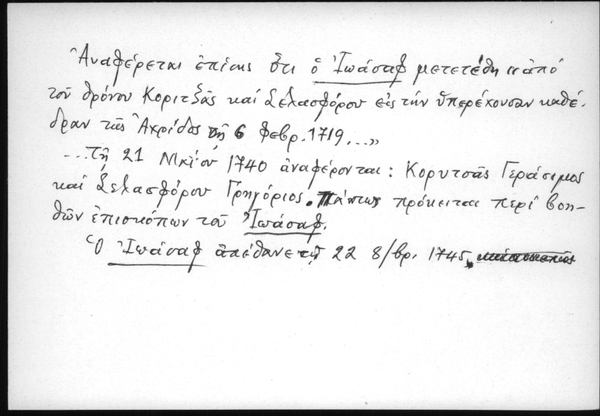 Ἀναφέρεται ἐπίσης ὅτι ὁ Ἰωάσαφ μετετέθη "ἀπό
τοῦ θρόνου Κοριτζᾶς καί Σελασφόρου εἰς τήν ὑπερέχουσαν καθέ-
δραν τῆς Ἀχρίδος τῇ 6 Φεβρ. 1719...»
...Τῇ 21 Μαΐου 1740 ἀναφέρονται: Κορυτσᾶς Γεράσιμος
καί Σελασφόρου Γρηγόριος. Πάντως πρόκειται περί βοη-
θῶν ἐπισκόπων τοῦ Ἰωάσαφ.
Ὁ Ἰωάσαφ ἀπέθανε τῇ 22 8/βρ. 1745.